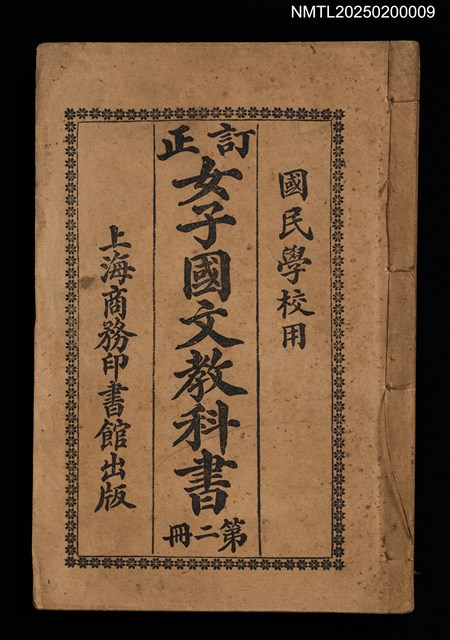 NMTL20250200009
國民學校用
訂正
女子國文教科書
第二冊
上海商務印書館出版